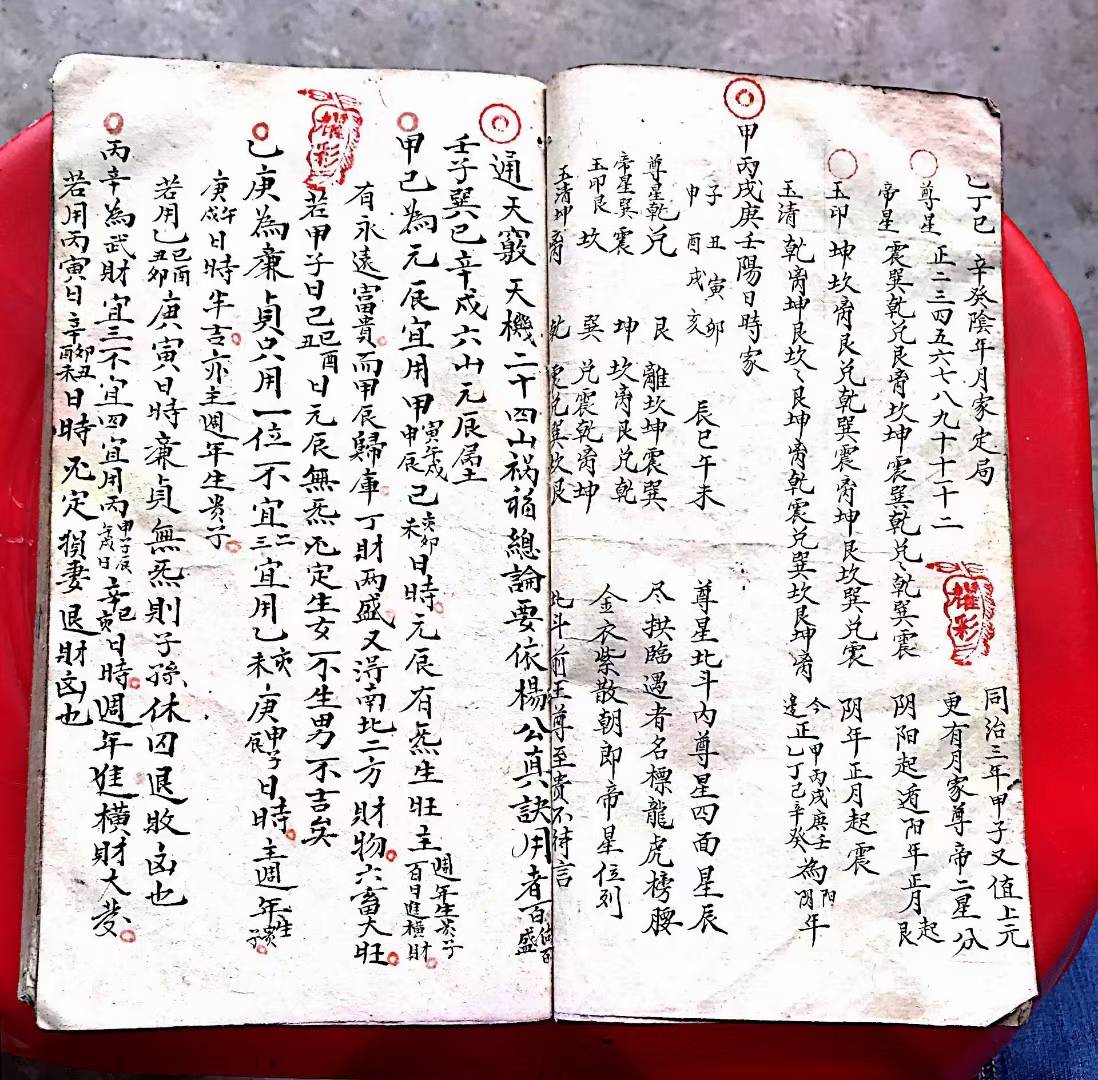 同治三年甲子又值上元
乙丁己　辛癸陰年月家定局　更有月家尊帝二星分
尊星　正二三四五六七八九十十一十二　阴阳起遁阳年正月起艮
帝星　震巽乾兑艮离坎坤震巽乾兑乾巽震　阴年正月起震
玉印　坤坎离艮兑乾巽震离坤艮坎巽兑震　今甲丙戊庚壬為阳
玉清　乾离坤艮坎艮坤离乾震兑巽坎艮坤离　正乙丁己辛癸為阴年
甲丙戊庚壬陽日時家
子丑寅卯　辰巳午未　尊星北斗内尊星四面星辰
申酉戌亥
尊星乾兑　艮　離坎坤震巽　尽拱臨遇者名標龍虎榜腰
帝星巽震　坤　坎离艮兑乾　金衣紫散朝郎帝星位列
玉印艮坎　巽　兑震乾离坤　北斗前王尊至贵不待言
玉清坤离　乾
通天竅天機二十四山祸福總論要依楊公真訣用者百
壬子巽巳辛戌六山元辰屬土
甲己為元辰宜用甲寅午戌申辰己亥卯未日時元辰有炁生旺主週年生贵子百日進橫財
有永遠富貴而甲辰歸庫丁財两盛又浔南北二方財物六畜大旺
若甲子日己巳酉丑日元辰無炁定生女不生男不吉矣
乙庚為廉貞只用一位不宜二三宜用乙亥未庚申子辰日時主週年生贵子
庚午戌日時半吉亦主週年生贵子
若用乙巳酉丑卯庚寅日時廉貞無炁則子孫休囚退敗凶也
丙辛為武財宜三不宜四宜用丙申子辰午戌日辛巳亥日時週年進橫財大發
若用丙寅日辛卯丑酉未日時定损妻退財凶也
耀彩
耀彩